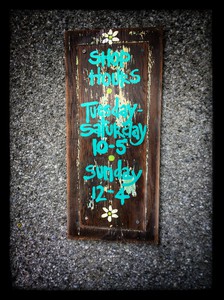 SHOP
HOURS
Tuesday-
Saturday
10-5
Sunday
12-4